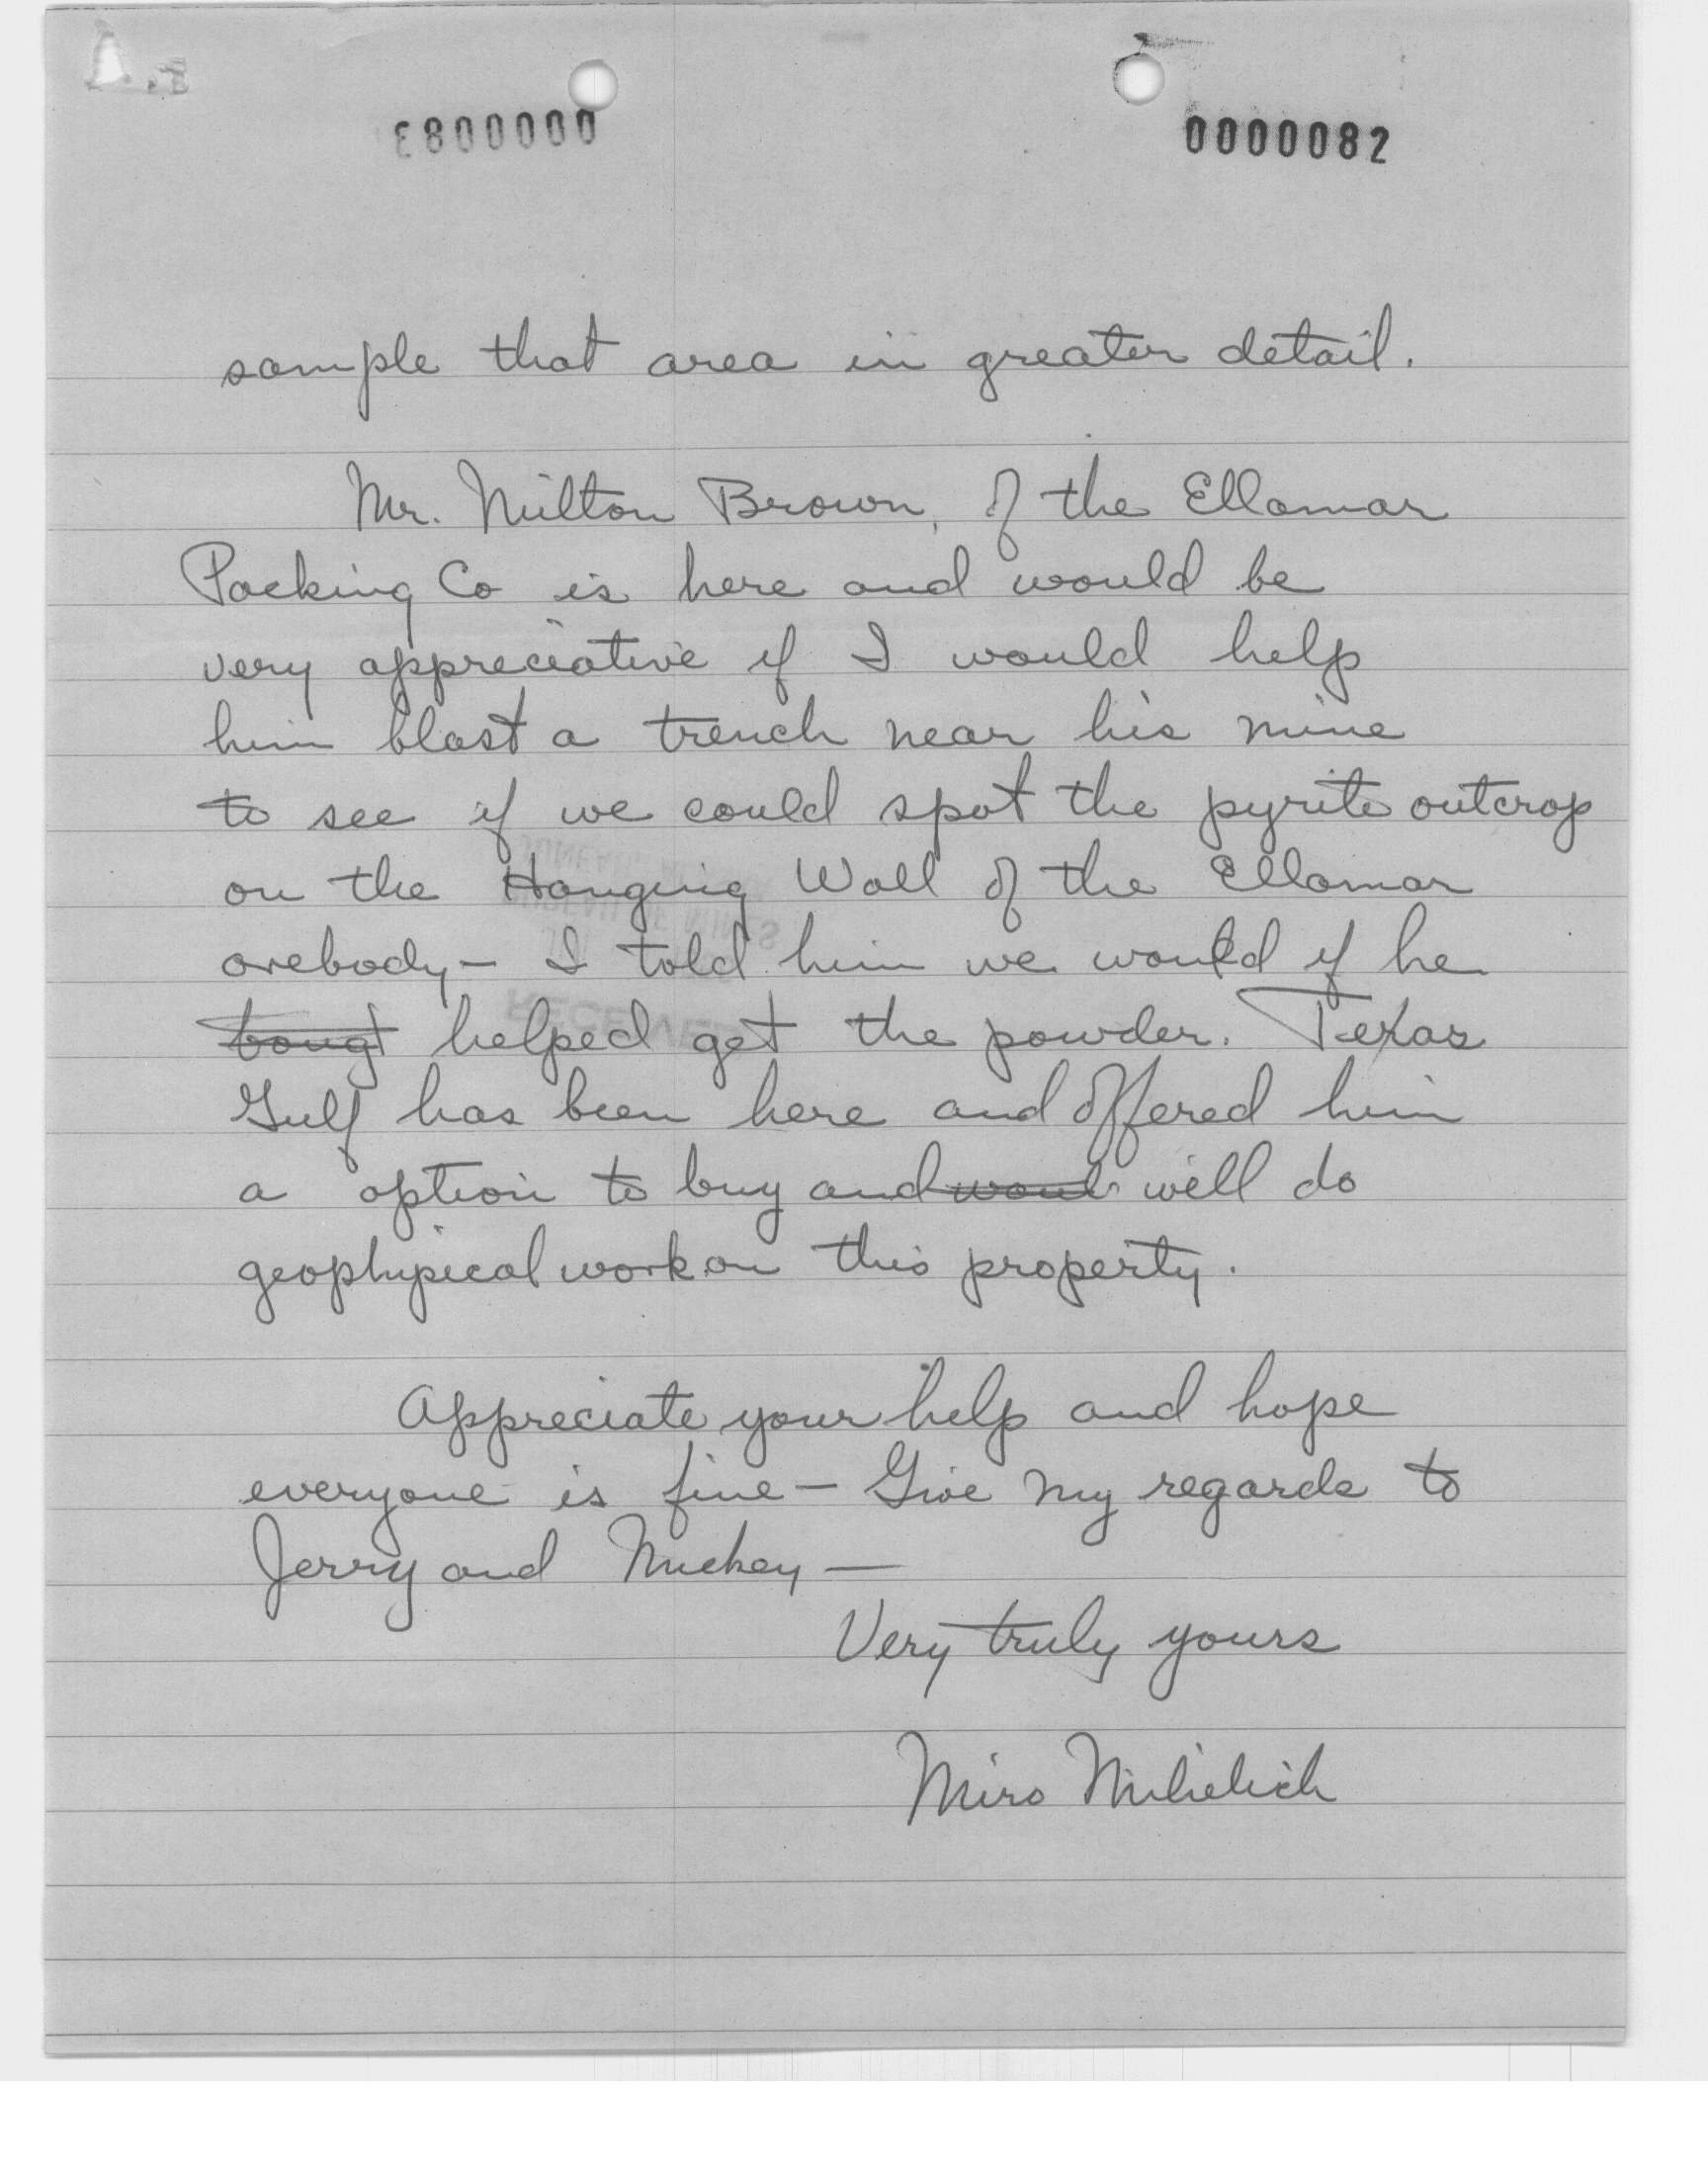 0000083
0000082
sample that area in greater detail.
Mr. Milton Brown, of the Ellamar
Packing Co is here and would be
very appreciative if I would help
him blast a trench near his mine
to see if we could spot the pyrite outcrop
on the Hanging Wall of the Ellamar
orebody – I told him we would if he
bougt helped get the powder. Texas
Gulf has been here and offered him
a option to buy and woul will do
geophysical work on this property.
Appreciate your help and hope
everyone is fine – Give my regards to
Jerry and Mickey —
Very truly yours
Miro Mihelich